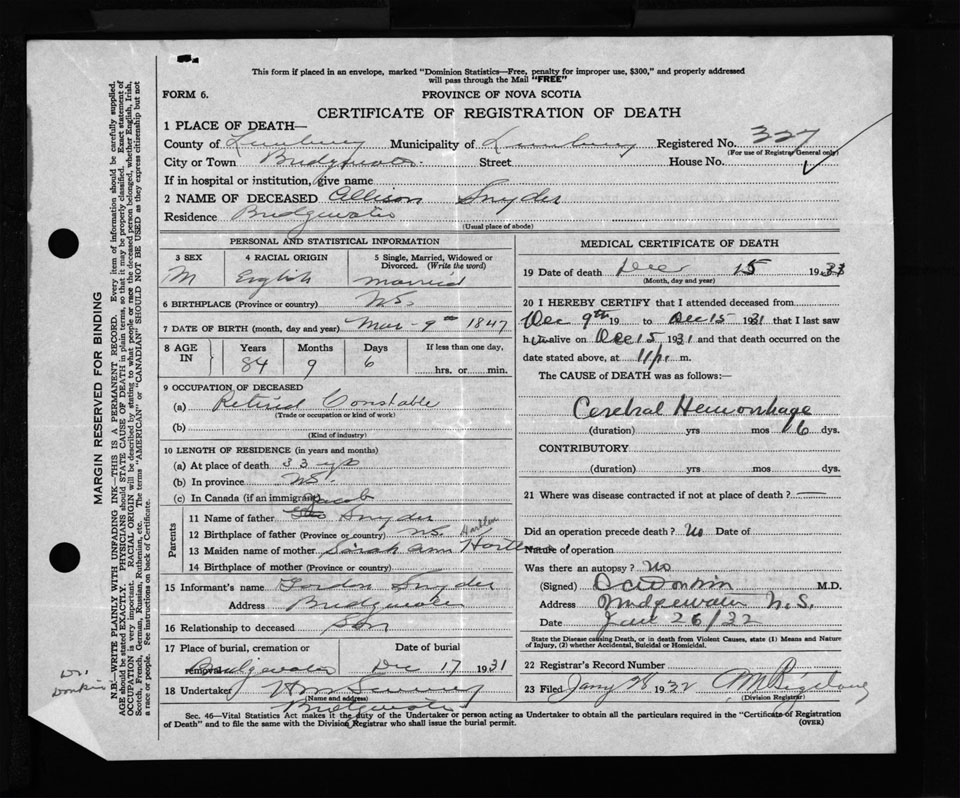 This form if placed in an envelope, marked "Dominion Statistics—Free, penalty for improper use, $300," and properly addressed
will pass through the Mail "FREE"
FORM 6.
PROVINCE OF NOVA SCOTIA
CERTIFICATE OF REGISTRATION OF DEATH
1 PLACE OF DEATH—
County of Lunenburg Municipality of Lunenburg Registered No. 327
(For use of Registrar General only)
City or Town Bridgewater Street House No.
If in hospital or institution, give name
2 NAME OF DECEASED Allison Snyder
Residence Bridgewater
(Usual place of abode)
PERSONAL AND STATISTICAL INFORMATION
3 SEX M
4 RACIAL ORIGIN English
5 Single, Married, Widowed or Divorced. (Write the word) married
6 BIRTHPLACE (Province or country) N.S.
7 DATE OF BIRTH (month, day and year) Mar - 9th 1847
8 AGE IN Years 84 Months 9 Days 6 If less than one day, hrs. or min.
9 OCCUPATION OF DECEASED
(a) Retired Constable
(Trade or occupation or kind of work)
(b)
(Kind of industry)
10 LENGTH OF RESIDENCE (in years and months)
(a) At place of death 33 yrs
(b) In province N.S.
(c) In Canada (if an immigrant)
Parents
Jacob
11 Name of father Snyder
12 Birthplace of father (Province or country) N.S.
13 Maiden name of mother Sarah Ann
14 Birthplace of mother (Province or country)
15 Informant's name Gordon Snyder
Address Bridgewater
16 Relationship to deceased Son
17 Place of burial, cremation or removal Bridgewater Date of burial Dec 17 1931
18 Undertaker
(Name and address)
Bridgewater
MEDICAL CERTIFICATE OF DEATH
19 Date of death Dec 15 1931
(Month, day and year)
20 I HEREBY CERTIFY that I attended deceased from
Dec 9th 19 to Dec 15 1931 that I last saw
him alive on Dec 15 1931 and that death occurred on the
date stated above, at 11 p. m.
The CAUSE of DEATH was as follows:—
Cerebral Hemorrhage
(duration) yrs mos 6 dys.
CONTRIBUTORY
(duration) yrs mos dys.
21 Where was disease contracted if not at place of death? —
Did an operation precede death? No Date of
Nature of operation
Was there an autopsy? No
(Signed) Donkin M.D.
Address Bridgewater N.S.
Date Jan 26/32
State the Disease causing Death, or in death from Violent Causes, state (1) Means and Nature
of Injury, (2) whether Accidental, Suicidal or Homicidal.
22 Registrar's Record Number
23 Filed Jany 28 1932
(Division Registrar)
Sec. 46—Vital Statistics Act makes it the duty of the Undertaker or person acting as Undertaker to obtain all the particulars required in the "Certificate of Registration
of Death" and to file the same with the Division Registrar who shall issue the burial permit. (OVER)
MARGIN RESERVED FOR BINDING
N.B.—WRITE PLAINLY WITH UNFADING INK—THIS IS A PERMANENT RECORD. Every item of information should be carefully supplied.
AGE should be stated EXACTLY. PHYSICIANS should STATE CAUSE OF DEATH in plain terms, so that it may be properly classified. Exact statement of
OCCUPATION is very important. RACIAL ORIGIN will be described by stating to what people or race the deceased person belonged, whether English, Irish,
Scotch, French, German, Russian, Ruthenian, etc. The terms "AMERICAN" or "CANADIAN" SHOULD NOT BE USED as they express citizenship but not
a race or people. See instructions on back of Certificate.
Dr.
Donkin